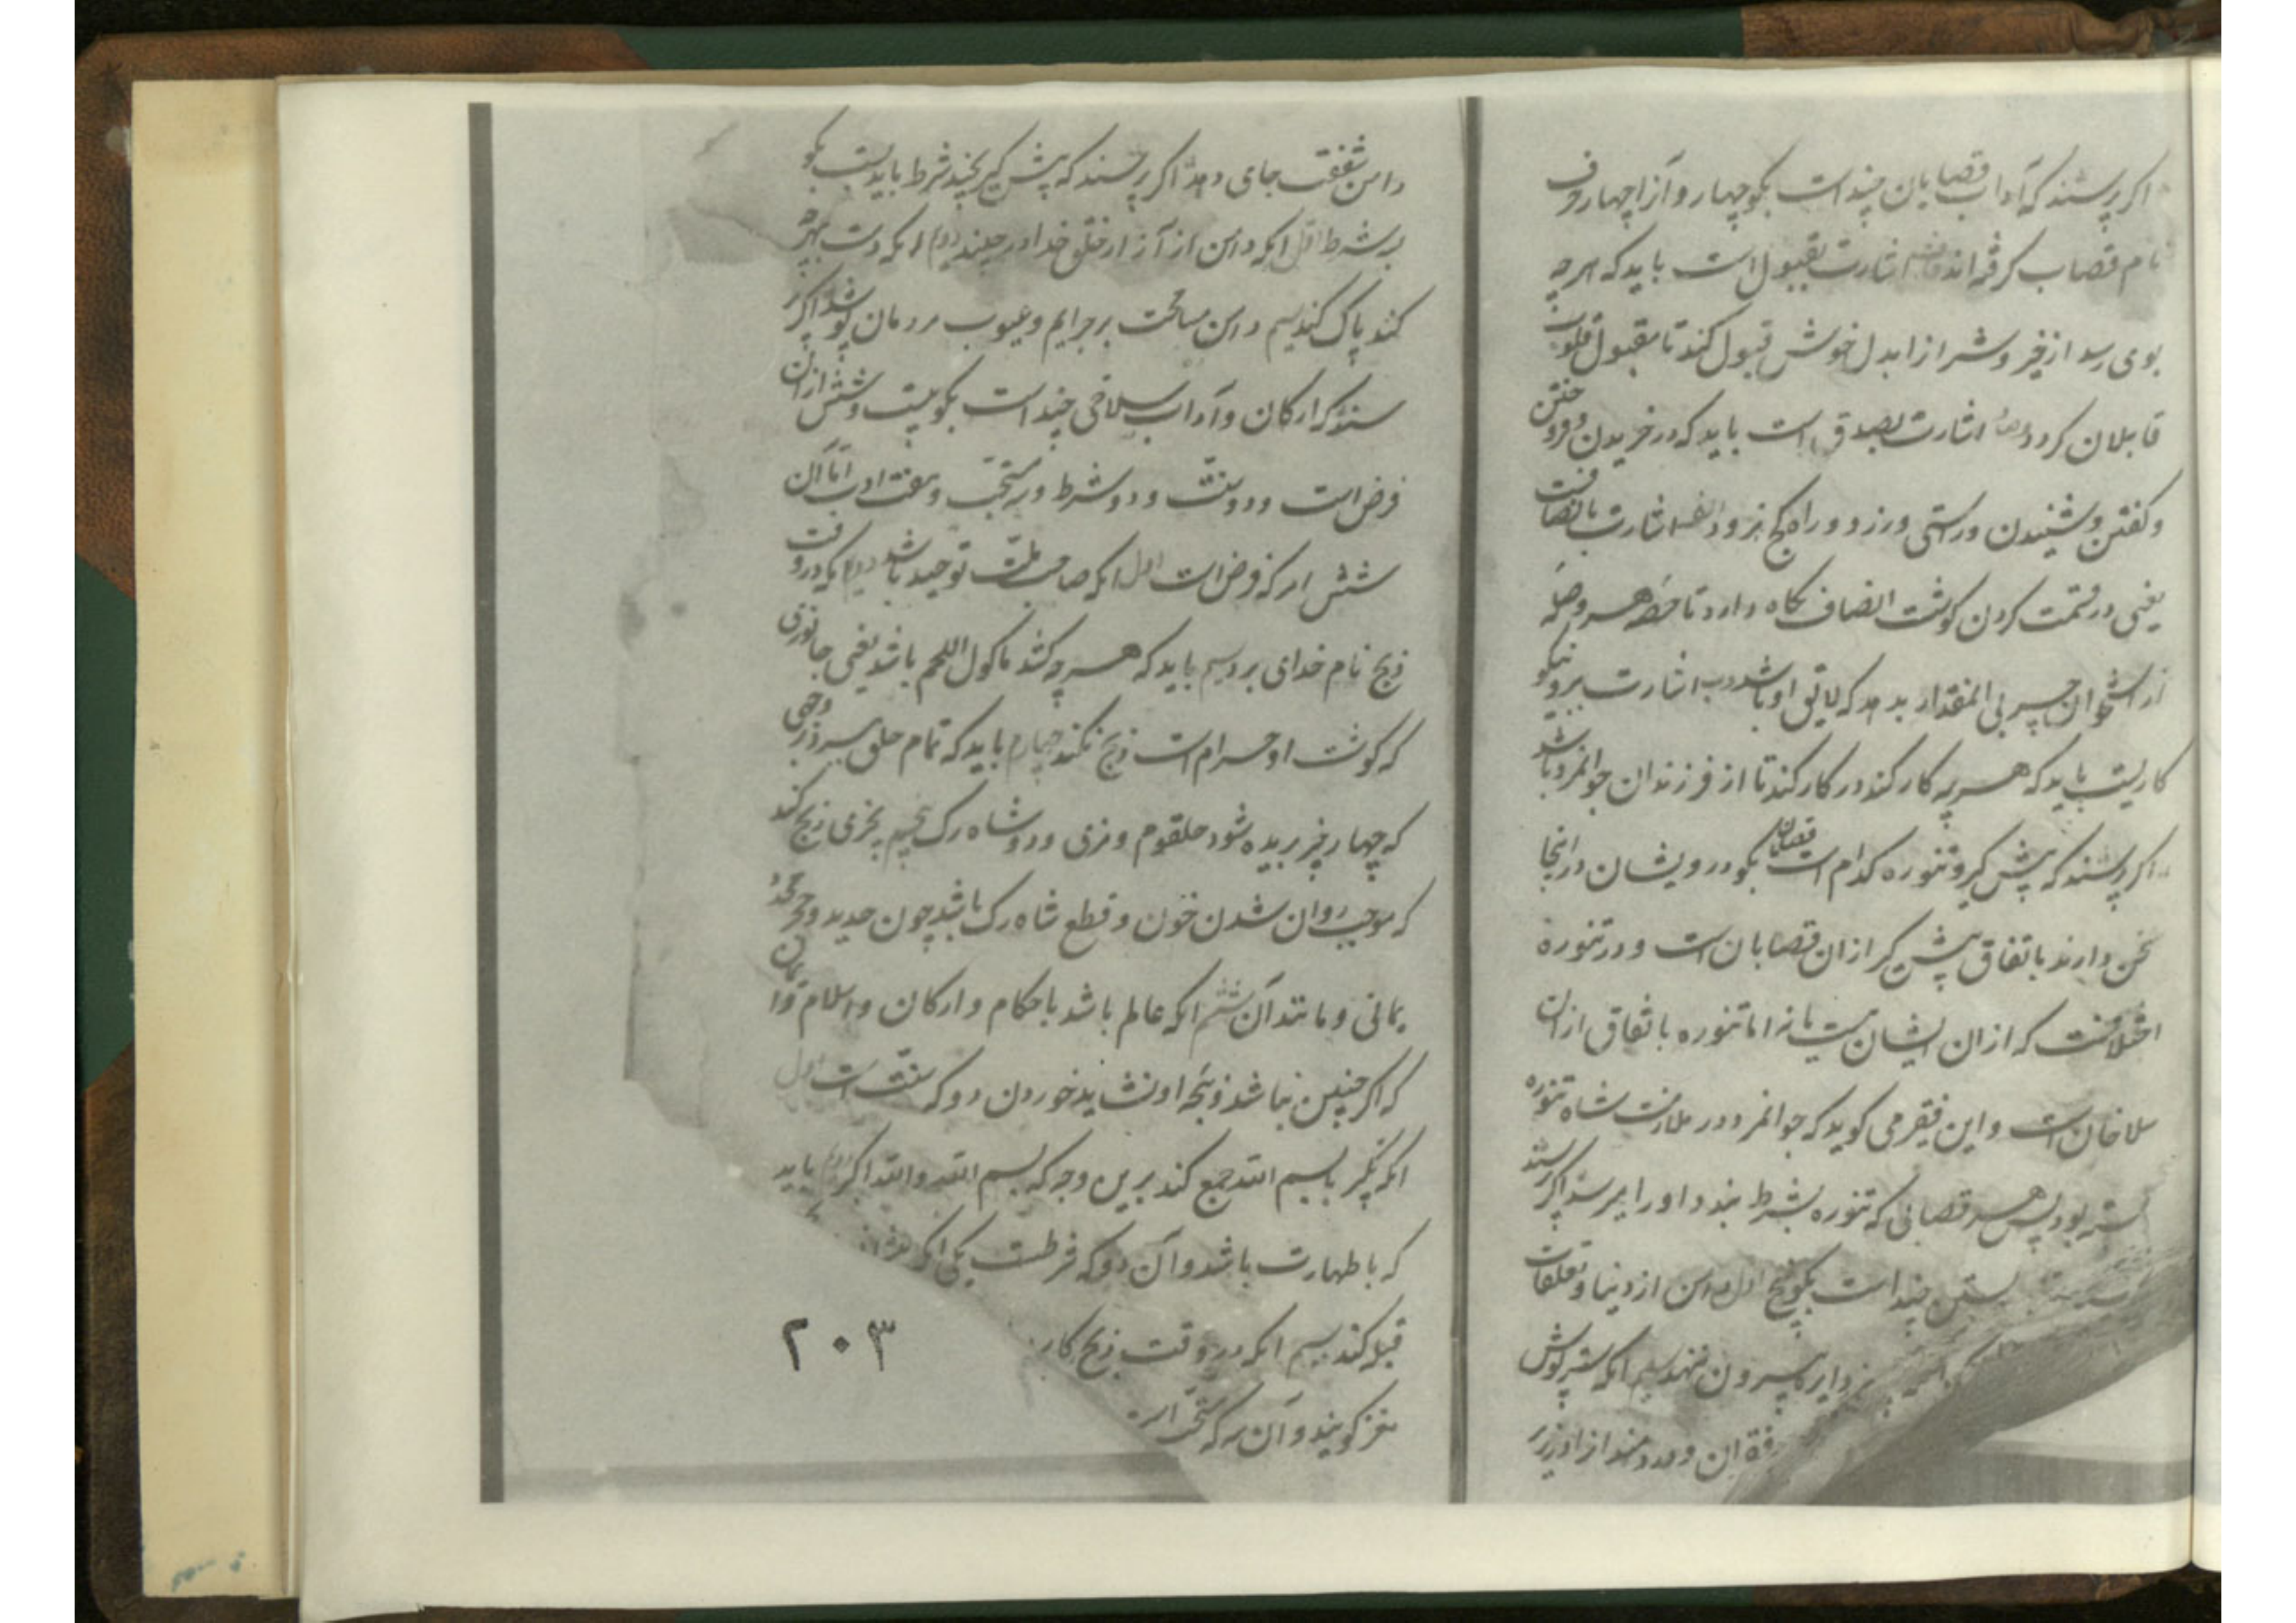 اکر پرسند که آداب قصابان چند است بکو چهار و آنرا چهار حرف
نام قصاب کرفته اند قاف اشارت بقبول است باید که هر چه
بوی رسد از خیر و شر انرا بدل خوش قبول کند تا مقبول قلوب
قابلان کردد و صاد اشارت بصدق است باید که در خریدن و فروختن
و کفتن و شنیدن راستی ورزد و راه کج نرود الف اشارت بانصافست
یعنی در قسمت کردن کوشت انصاف نکاه دارد تا حصه هر وصله
از استخوان چربی انمقدار بدهد که لایق او باشد ب اشارت بر نیکو
کاریست باید که هر چه کار کند در کار کند تا از فرزندان جوانمرد باشد
اکر پرسند که پیش کیر و تنوره کدام است قصابان بکو درویشان در اینجا
سخن دارند باتفاق پیش کیر ازان قصابان است و در تنوره
اختلافست که ازان ایشان هست یا نه اما تنوره باتفاق ازان
سلاخان است و این فقیر می کوید که جوانمرد در ملازمت شاه تنوره
بسته بود پس هر قصابی که تنوره بشرط بندد او را میرسد اکر پرسند
بستن چند است بکو پنج اول دامن از دنیا و تعلقات
دایره بیرون ننهد سیم انکه ستر پوش
فقران و دردمند از او زیر
دامن شفقت جای دهد اکر پرسند که پیش کیر بچند شرط باید بست بکو
بسه شرط اول انکه دامن از آزار خلق خدا در چیند دوم انکه دست بهر چه
کند پاک کند سیم دامن مسامحت بر جرایم و عیوب مردمان پوشد اکر پر
سند که ارکان و آداب سلاخی چند است بکو بیست و شش ازان
فرض است و دو سنت و دو شرط و سه مستحب و هفت ادب اما آن
شش ار که فرض است اول انکه صاحب ملت توحید باشد دوم انکه در وقت
ذبح نام خدای برد سیم باید که هر چه کشد ماکول اللحم باشد یعنی جانوری
که کوشت او حرام است ذبح نکند چهارم باید که تمام حلق ببرد بر وجهی
که چهار چیز بریده شود حلقوم و مری و دو شاه رک پنجم بچیزی ذبح کند
که موجب روان شدن خون و قطع شاه رک باشد چون حدید و حجر محدد
یمانی و مانند آن ششم انکه عالم باشد باحکام و ارکان و اسلام و ایمان
که اکر چنین نباشد ذبیحه او نشاید خوردن دو که سنت است اول
انکه تکبر با بسم الله جمع کند برین وجه که بسم الله والله اکبر دوم باید
که با طهارت باشد و آن دو که شرطست یکی انکه
قبله کند سیم انکه در وقت ذبح کار
مغز کویند و آن سه که مستحب
۲۰۳